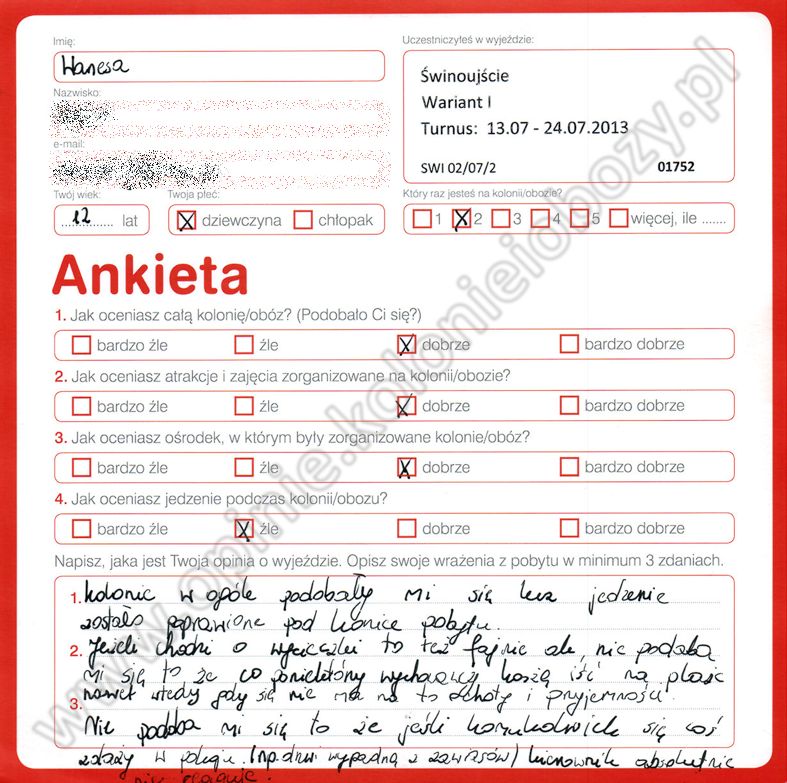 Imię:
Wanesa
Nazwisko:
e-mail:
Twój wiek:
12 lat
Twoja płeć:
X dziewczyna chłopak
Uczestniczyłeś w wyjeździe:
Świnoujście
Wariant I
Turnus: 13.07 - 24.07.2013
SWI 02/07/2 01752
Który raz jesteś na kolonii/obozie?
1 X 2 3 4 5 więcej, ile .......
Ankieta
1. Jak oceniasz całą kolonię/obóz? (Podobało Ci się?)
bardzo źle źle X dobrze bardzo dobrze
2. Jak oceniasz atrakcje i zajęcia zorganizowane na kolonii/obozie?
bardzo źle źle X dobrze bardzo dobrze
3. Jak oceniasz ośrodek, w którym były zorganizowane kolonie/obóz?
bardzo źle źle X dobrze bardzo dobrze
4. Jak oceniasz jedzenie podczas kolonii/obozu?
bardzo źle X źle dobrze bardzo dobrze
Napisz, jaka jest Twoja opinia o wyjeździe. Opisz swoje wrażenia z pobytu w minimum 3 zdaniach.
1. kolonie w ogóle podobały mi się lecz jedzenie
zostało poprawione pod koniec pobytu.
2. Jeżeli chodzi o wycieczki to też fajnie ale, nie podoba
mi się to że co wychowawcy każą iść na plażę
nawet wtedy gdy się nie ma na to ochoty i przyjemności.
3.
Nie podoba mi się to że jeśli komukolwiek się coś
zdaży w pokoju (np. drzwi wypadną z zawiasów) kierownik absolutnie
nie reaguje.
www.opinie.kolonieiobozy.pl